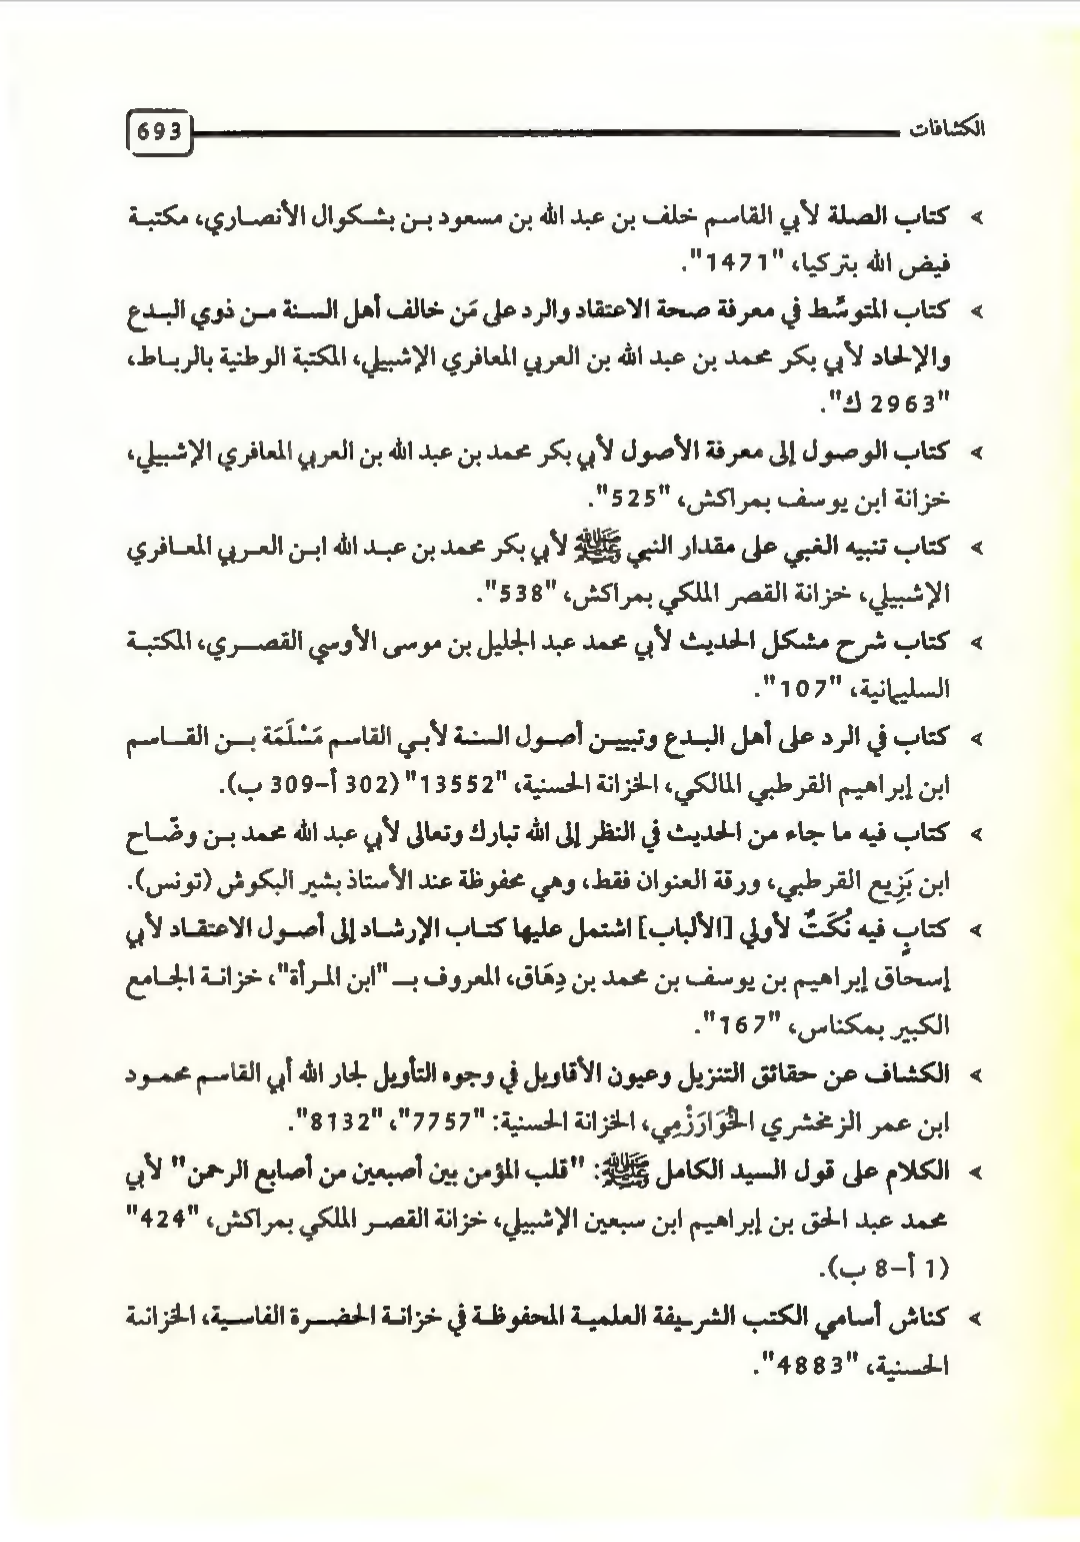 الكشافات 693
➢ كتاب الصلة لأبي القاسم خلف بن عبد الله بن مسعود بن بشكوال الأنصاري، مكتبة
فيض الله بتركيا، "1471".
➢ كتاب المتوسِّط في معرفة صحة الاعتقاد والرد على مَن خالف أهل السنة من ذوي البدع
والإلحاد لأبي بكر محمد بن عبد الله بن العربي المعافري الإشبيلي، المكتبة الوطنية بالرباط،
"2963 ك".
➢ كتاب الوصول إلى معرفة الأصول لأبي بكر محمد بن عبد الله بن العربي المعافري الإشبيلي،
خزانة ابن يوسف بمراكش، "525".
➢ كتاب تنبيه الغبي على مقدار النبي ﷺ لأبي بكر محمد بن عبد الله ابن العربي المعافري
الإشبيلي، خزانة القصر الملكي بمراكش، "538".
➢ كتاب شرح مشكل الحديث لأبي محمد عبد الجليل بن موسى الأوسي القصري، المكتبة
السليمانية، "107".
➢ كتاب في الرد على أهل البدع وتبيين أصول السنة لأبي القاسم مَسْلَمَة بن القاسم
ابن إبراهيم القرطبي المالكي، الخزانة الحسنية، "13552" (302 أ-309 ب).
➢ كتاب فيه ما جاء من الحديث في النظر إلى الله تبارك وتعالى لأبي عبد الله محمد بن وضّاح
ابن بَزِيع القرطبي، ورقة العنوان فقط، وهي محفوظة عند الأستاذ بشير البكوش (تونس).
➢ كتابٍ فيه نُكَتٌ لأولي [الألباب] اشتمل عليها كتاب الإرشاد إلى أصول الاعتقاد لأبي
إسحاق إبراهيم بن يوسف بن محمد بن دِهَاق، المعروف بـ "ابن المرأة"، خزانة الجامع
الكبير بمكناس، "167".
➢ الكشاف عن حقائق التنزيل وعيون الأقاويل في وجوه التأويل لجار الله أبي القاسم محمود
ابن عمر الزمخشري الخُوَارَزْمِي، الخزانة الحسنية: "7757"، "8132".
➢ الكلام على قول السيد الكامل ﷺ: "قلب المؤمن بين أصبعين من أصابع الرحمن" لأبي
محمد عبد الحق بن إبراهيم ابن سبعين الإشبيلي، خزانة القصر الملكي بمراكش، "424"
(1 أ-8 ب).
➢ كناش أسامي الكتب الشريفة العلمية المحفوظة في خزانة الحضرة الفاسية، الخزانة
الحسنية، "4883".